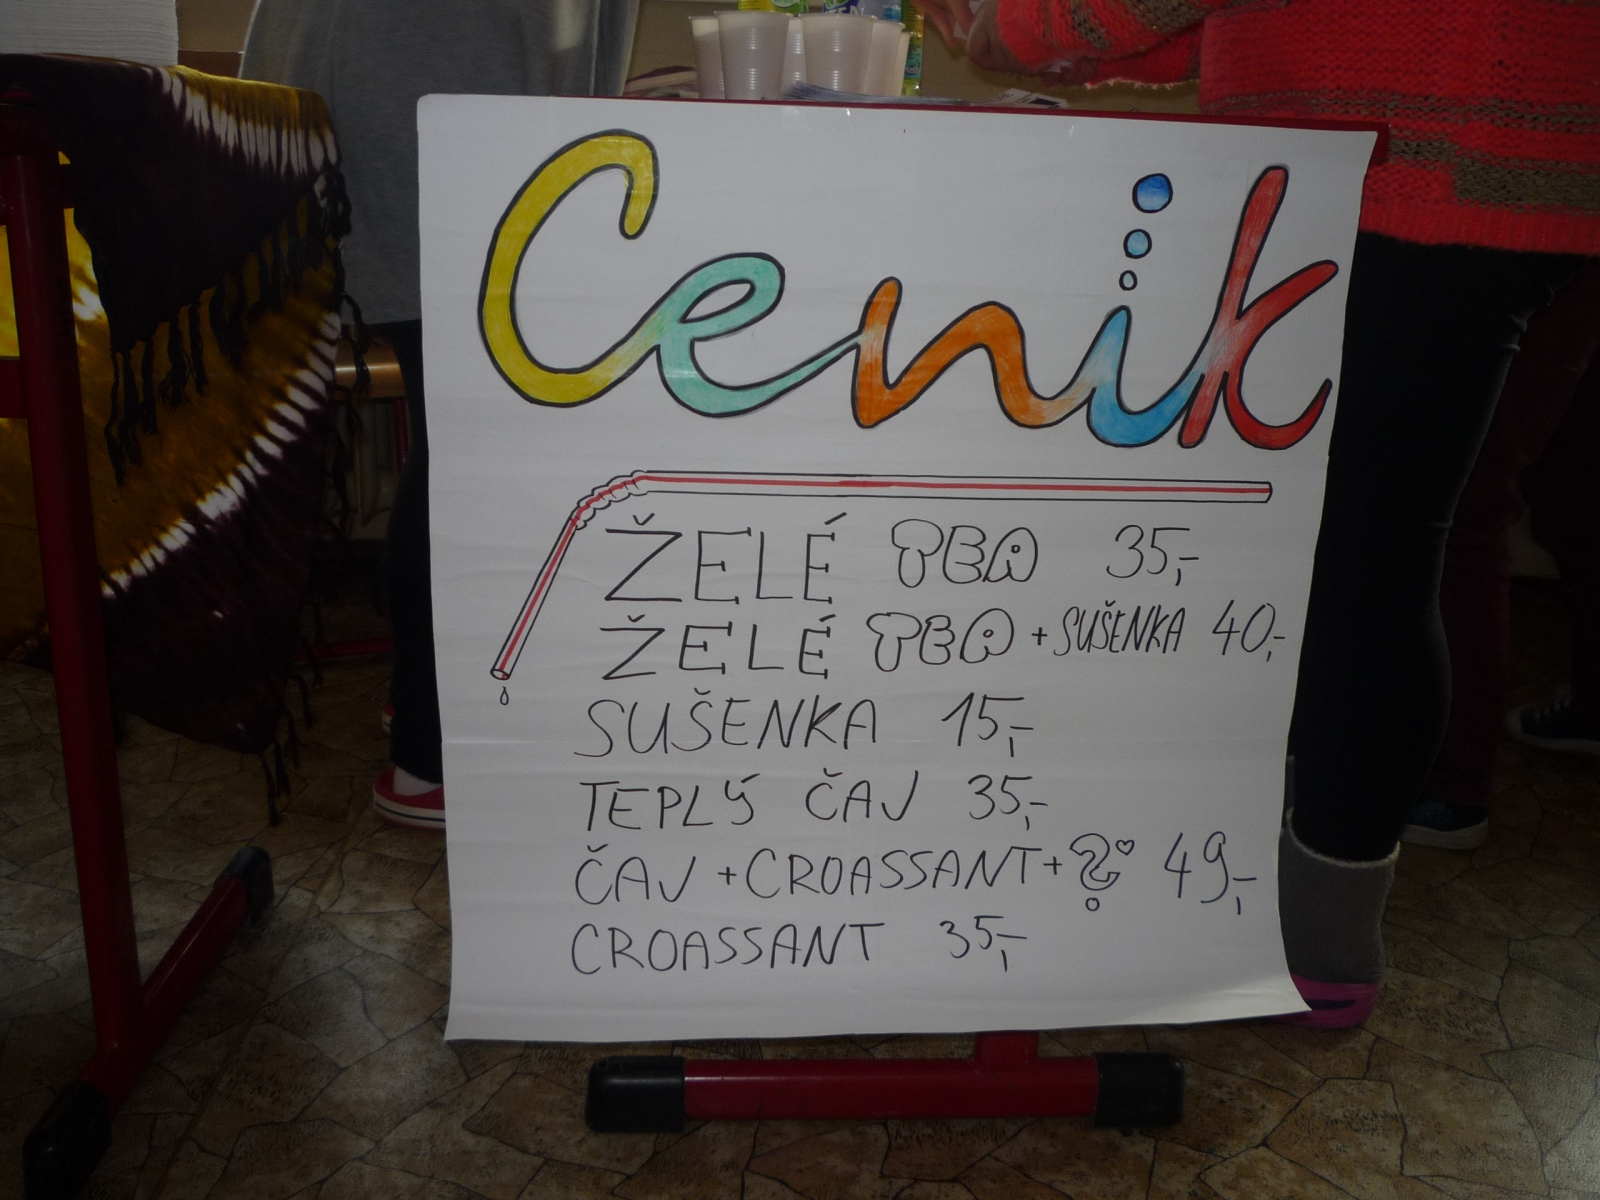 Ceník
ŽELÉ TEA 35,-
ŽELÉ TEA + SUŠENKA 40,-
SUŠENKA 15,-
TEPLÝ ČAJ 35,-
ČAJ + CROASSANT + ? 49,-
CROASSANT 35,-